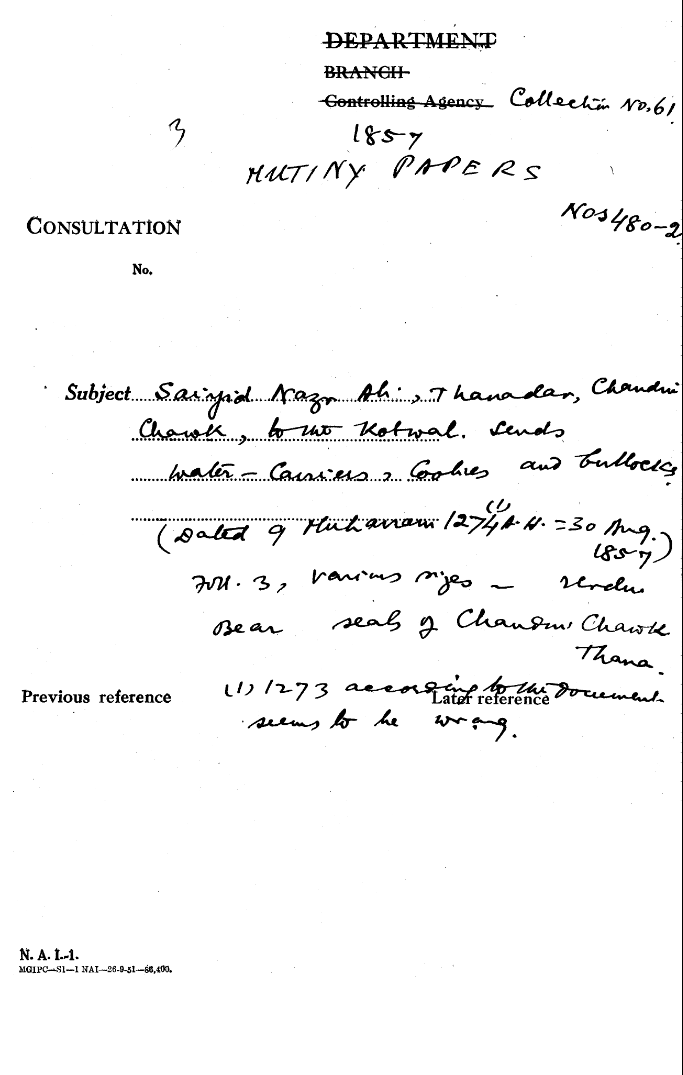 DEPARTMENT
BRANCH
Controlling Agency Collection No. 61
3
1857
MUTINY PAPERS
Nos 480-2
CONSULTATION
No.
Subject Saiyid Nazr Ali, Thanadar, Chandni
Chawk, to the Kotwal. Sends
water-carriers, Coolies and bullocks
(Dated 9 Muharram 1274(1) A.H. = 30 Aug. 1857)
Foll. 3, various sizes - Urdu
Bear seals of Chandni Chawk
Thana.
Previous reference
(1) 1273 according to the document
Later reference
seems to be wrong.
N. A. I.-1.
MGIPC—S1—1 NAI—26-9-51—86,400.